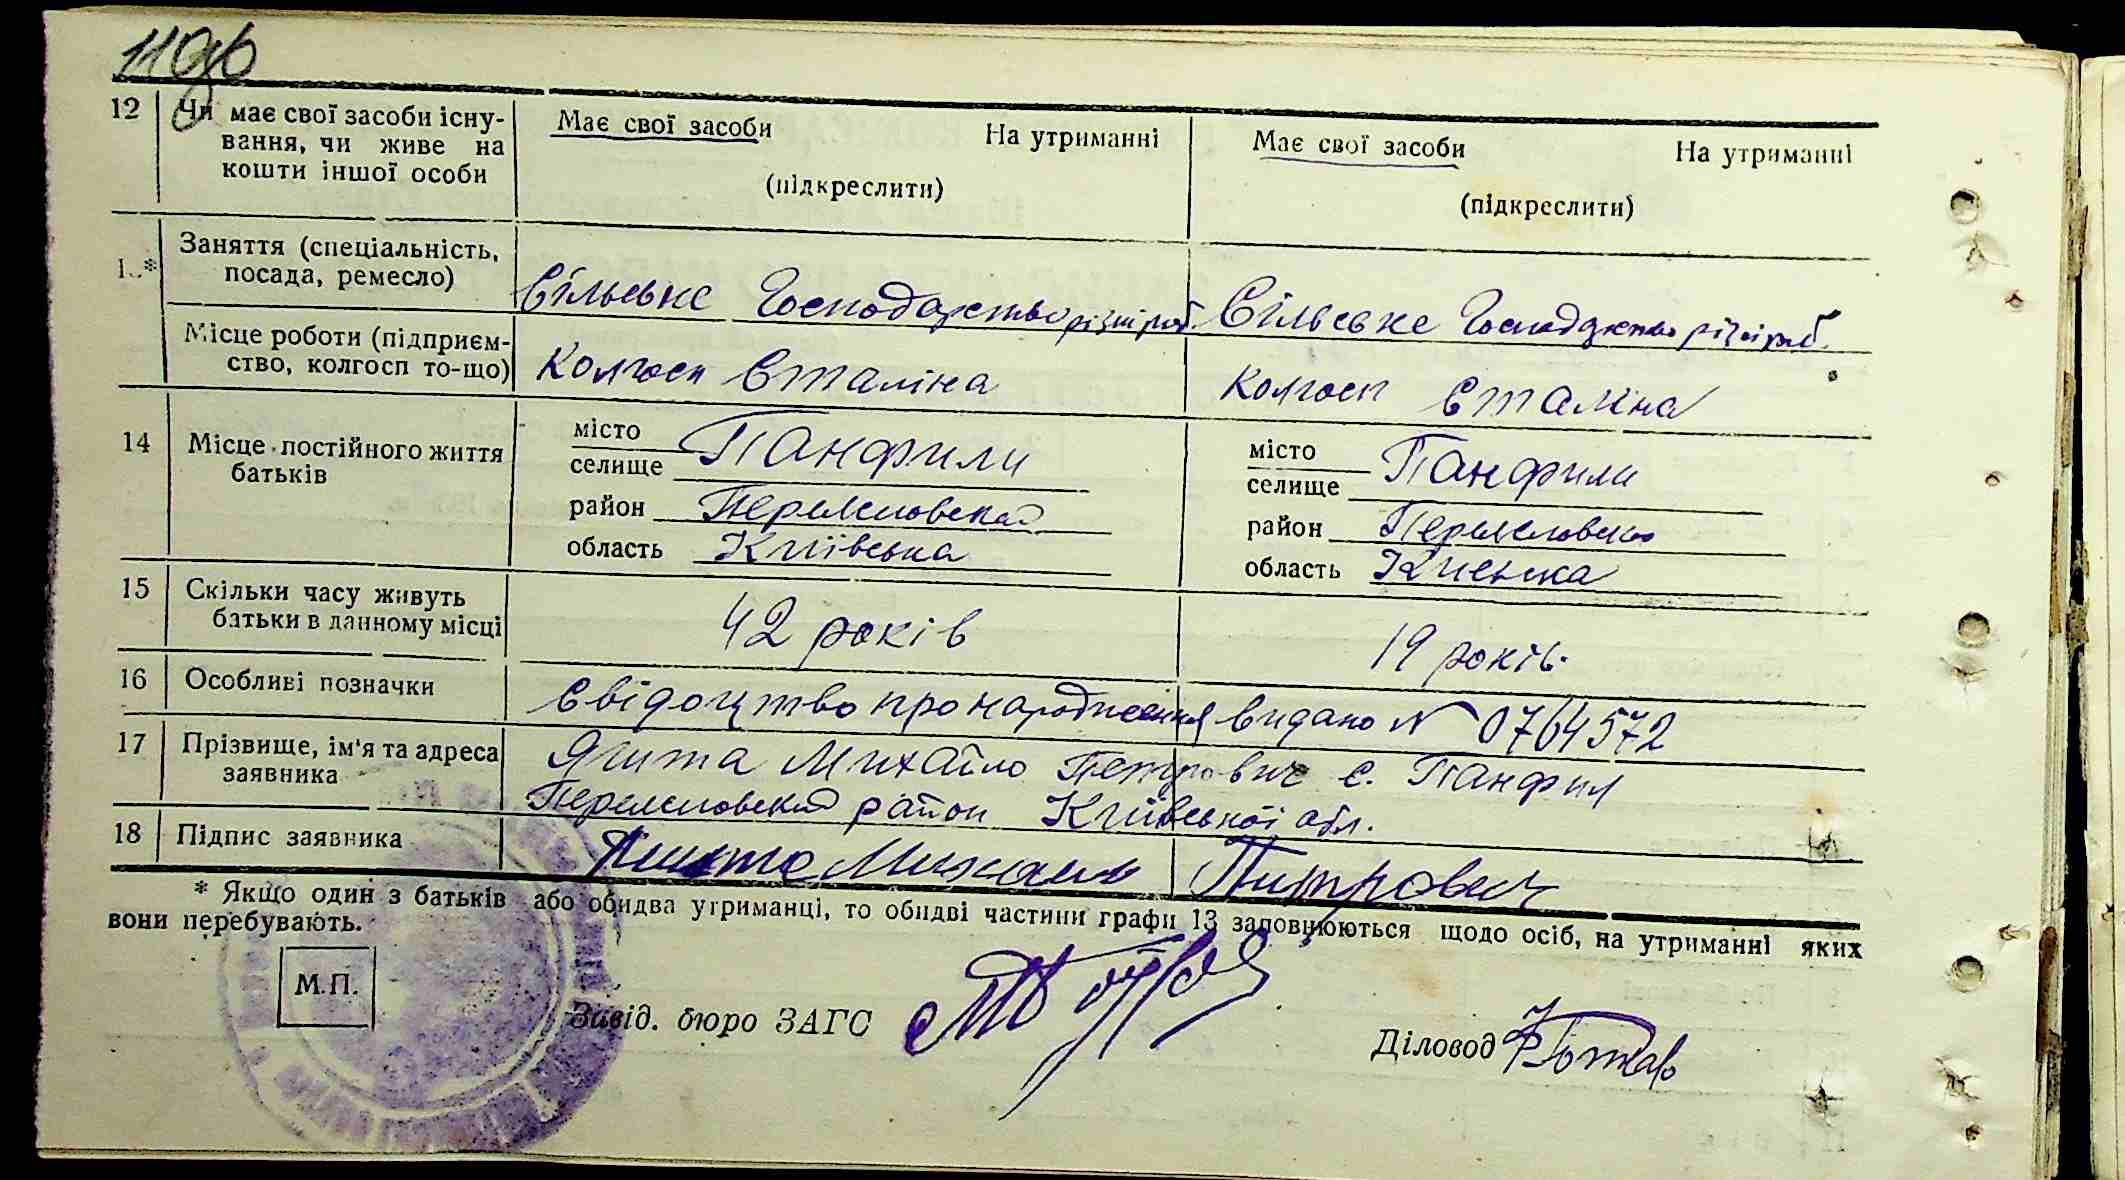 110
12 Чи має свої засоби існу-
вання, чи живе на
кошти іншої особи
Має свої засоби На утриманні
(підкреслити)
Має свої засоби На утриманні
(підкреслити)
Заняття (спеціальність,
посада, ремесло)
Сільське Господарство різні роб.
Сільське Господарство різні роб.
Місце роботи (підприєм-
ство, колгосп то-що)
Колгосп Сталіна
Колгосп Сталіна
14 Місце постійного життя
батьків
місто
селище Панфили
район
область Київська
місто
селище Панфили
район
область
15 Скільки часу живуть
батьки в данному місці
42 років
19 років.
16 Особливі позначки
Свідоцтво про народження видано № 0764572
17 Прізвище, ім'я та адреса
заявника
Михайло Петрович с. Панфил
район Київської обл.
18 Підпис заявника
* Якщо один з батьків або обидва утриманці, то обидві частини графи 13 заповнюються щодо осіб, на утриманні яких
вони перебувають.
М.П.
Завід. бюро ЗАГС
Діловод